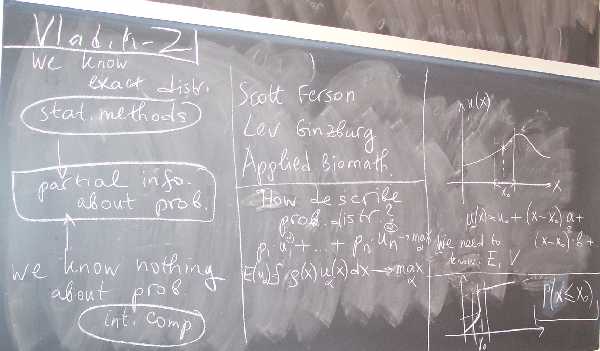 Vladik-2
we know
exact distr.
stat. methods
partial info.
about prob.
we know nothing
about prob.
int. comp
Scott Ferson
Lev Ginzburg
Applied Biomath.
How describe
prob. distr.?
p₁·u₁ + ... + pₙ·uₙ → max
E(u) ∫ ρ(x) u(x) dx → max
u(x)
x₀
x
u(x) = u₀ + (x-x₀)·a +
(x-x₀)²·b +
We need to
know E, V
x₀
P(x ≤ x₀)